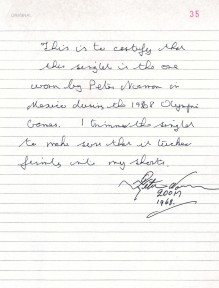 35
This is to certify that
this singlet is the one
worn by Peter Norman in
Mexico during the 1968 Olympic
Games. I trimmed the singlet
to make sure that it tucked
firmly into my shorts.
Peter Norman
200M
1968.